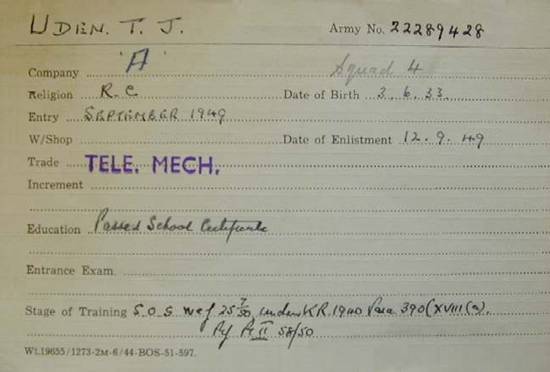 UDEN. T. J. Army No. 22289428
Company 'A' Squad 4
Religion R.C Date of Birth 3.6.33
Entry SEPTEMBER 1949
W/Shop Date of Enlistment 12.9.49
Trade TELE. MECH.
Increment
Education Passed School Certificate
Entrance Exam.
Stage of Training S.O.S wef 25 7/50, under KR. 1940 Para 390(XVIII(a).
Pt II 58/50
Wt.19655/1273-2M-6/44-BOS-51-597.